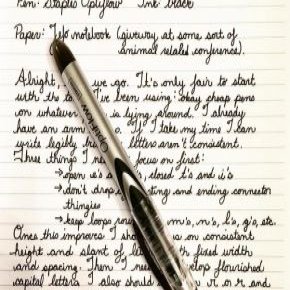 Pen: Staples Optiflow Ink: black
Paper: notebook (giveaway at some sort of
animal related conference).
Alright, we go. It's only fair to start
with the I've been using: okay cheap pens
on whatever is lying around. I already
have an If I take my time I can
write legibly letters aren't consistent.
Three things I focus on first:
→ open e's closed t's and i's
→ don't drop and ending connector
thingies
→ keep loops m's, n's, b's, g's, etc.
Once this improves I should on consistent
height and slant of fixed width
and spacing. Then I need flourished
capital letters. I also should r or r and
OptiFlow